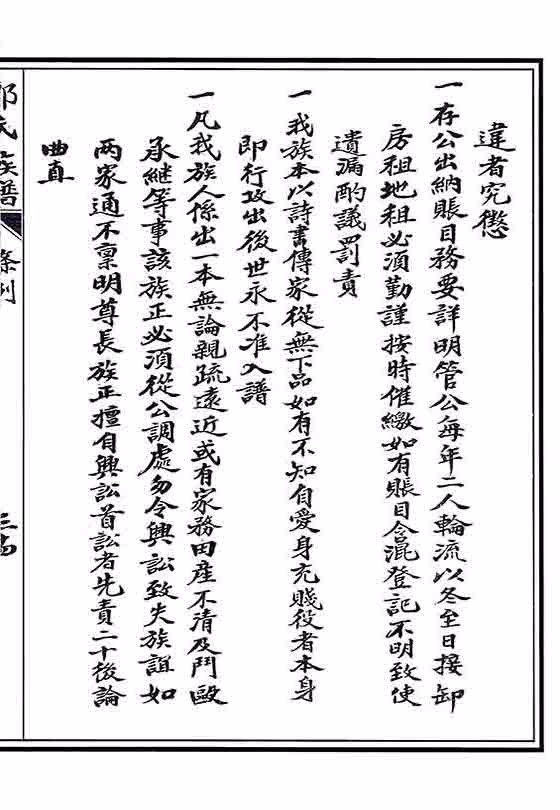 違者究懲
一存公出納賬目務要詳明管公每年二人輪流以冬至日接卸
房租地租必須勤謹按時催繳如有賬目含混登記不明致使
遺漏酌議罰責
一我族本以詩書傳家從無下品如有不知自愛身充賤役者本身
即行攻出後世永不准入譜
一凡我族人係出一本無論親疏遠近或有家務田産不清及鬥毆
承継等事該族正必須從公調處勿令興訟致失族誼如
两家通不禀明尊長族正擅自興訟首訟者先責二十後論
曲直
氏族譜
條例